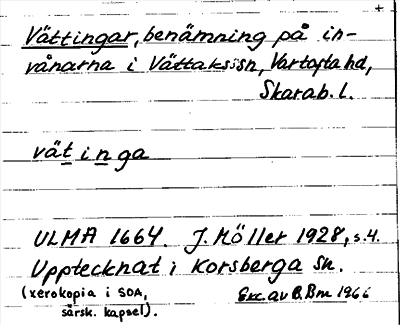 +
Vättingar, benämning på in-
vånarna i Vättakssn, Vartofta hd,
Skarab. l.
vätinga
ULMA 1664. J. Höller 1928, s. 4.
Upptecknat i Korsberga sn.
(xerokopia i SOA,
särsk. kapsel).
Exc. av B. Bm 1966